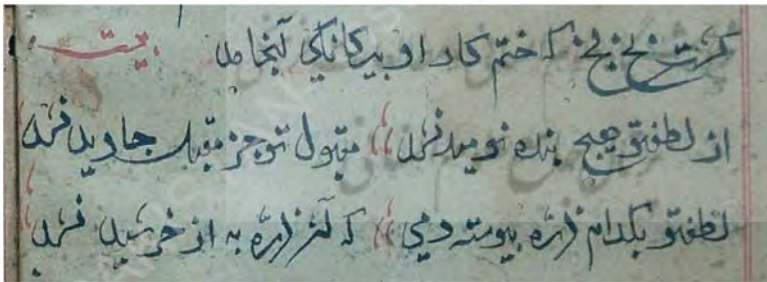 بخ بخ که ختم کار او بیت
از لطفتو هیچ بنده نومید نشد مقبول تو جز مقبل جاوید نشد
لطفتو بکدام ذره پیوسته دمی که آن ذره به از خورشید نشد